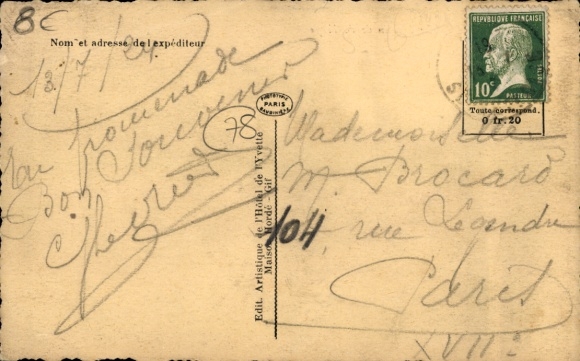 8€
Nom et adresse de l'expéditeur
13/7/24
En promenade
Bon Souvenir
78
PARIS
Edit. Artistique de l'Hôtel de l'Yvette
Maison Hordé - Gif
104
RÉPUBLIQUE FRANÇAISE
10c
PASTEUR
Toute correspond.
0 fr. 20
Mademoiselle
M. Brocard
rue Leandre
Paris
XVIII